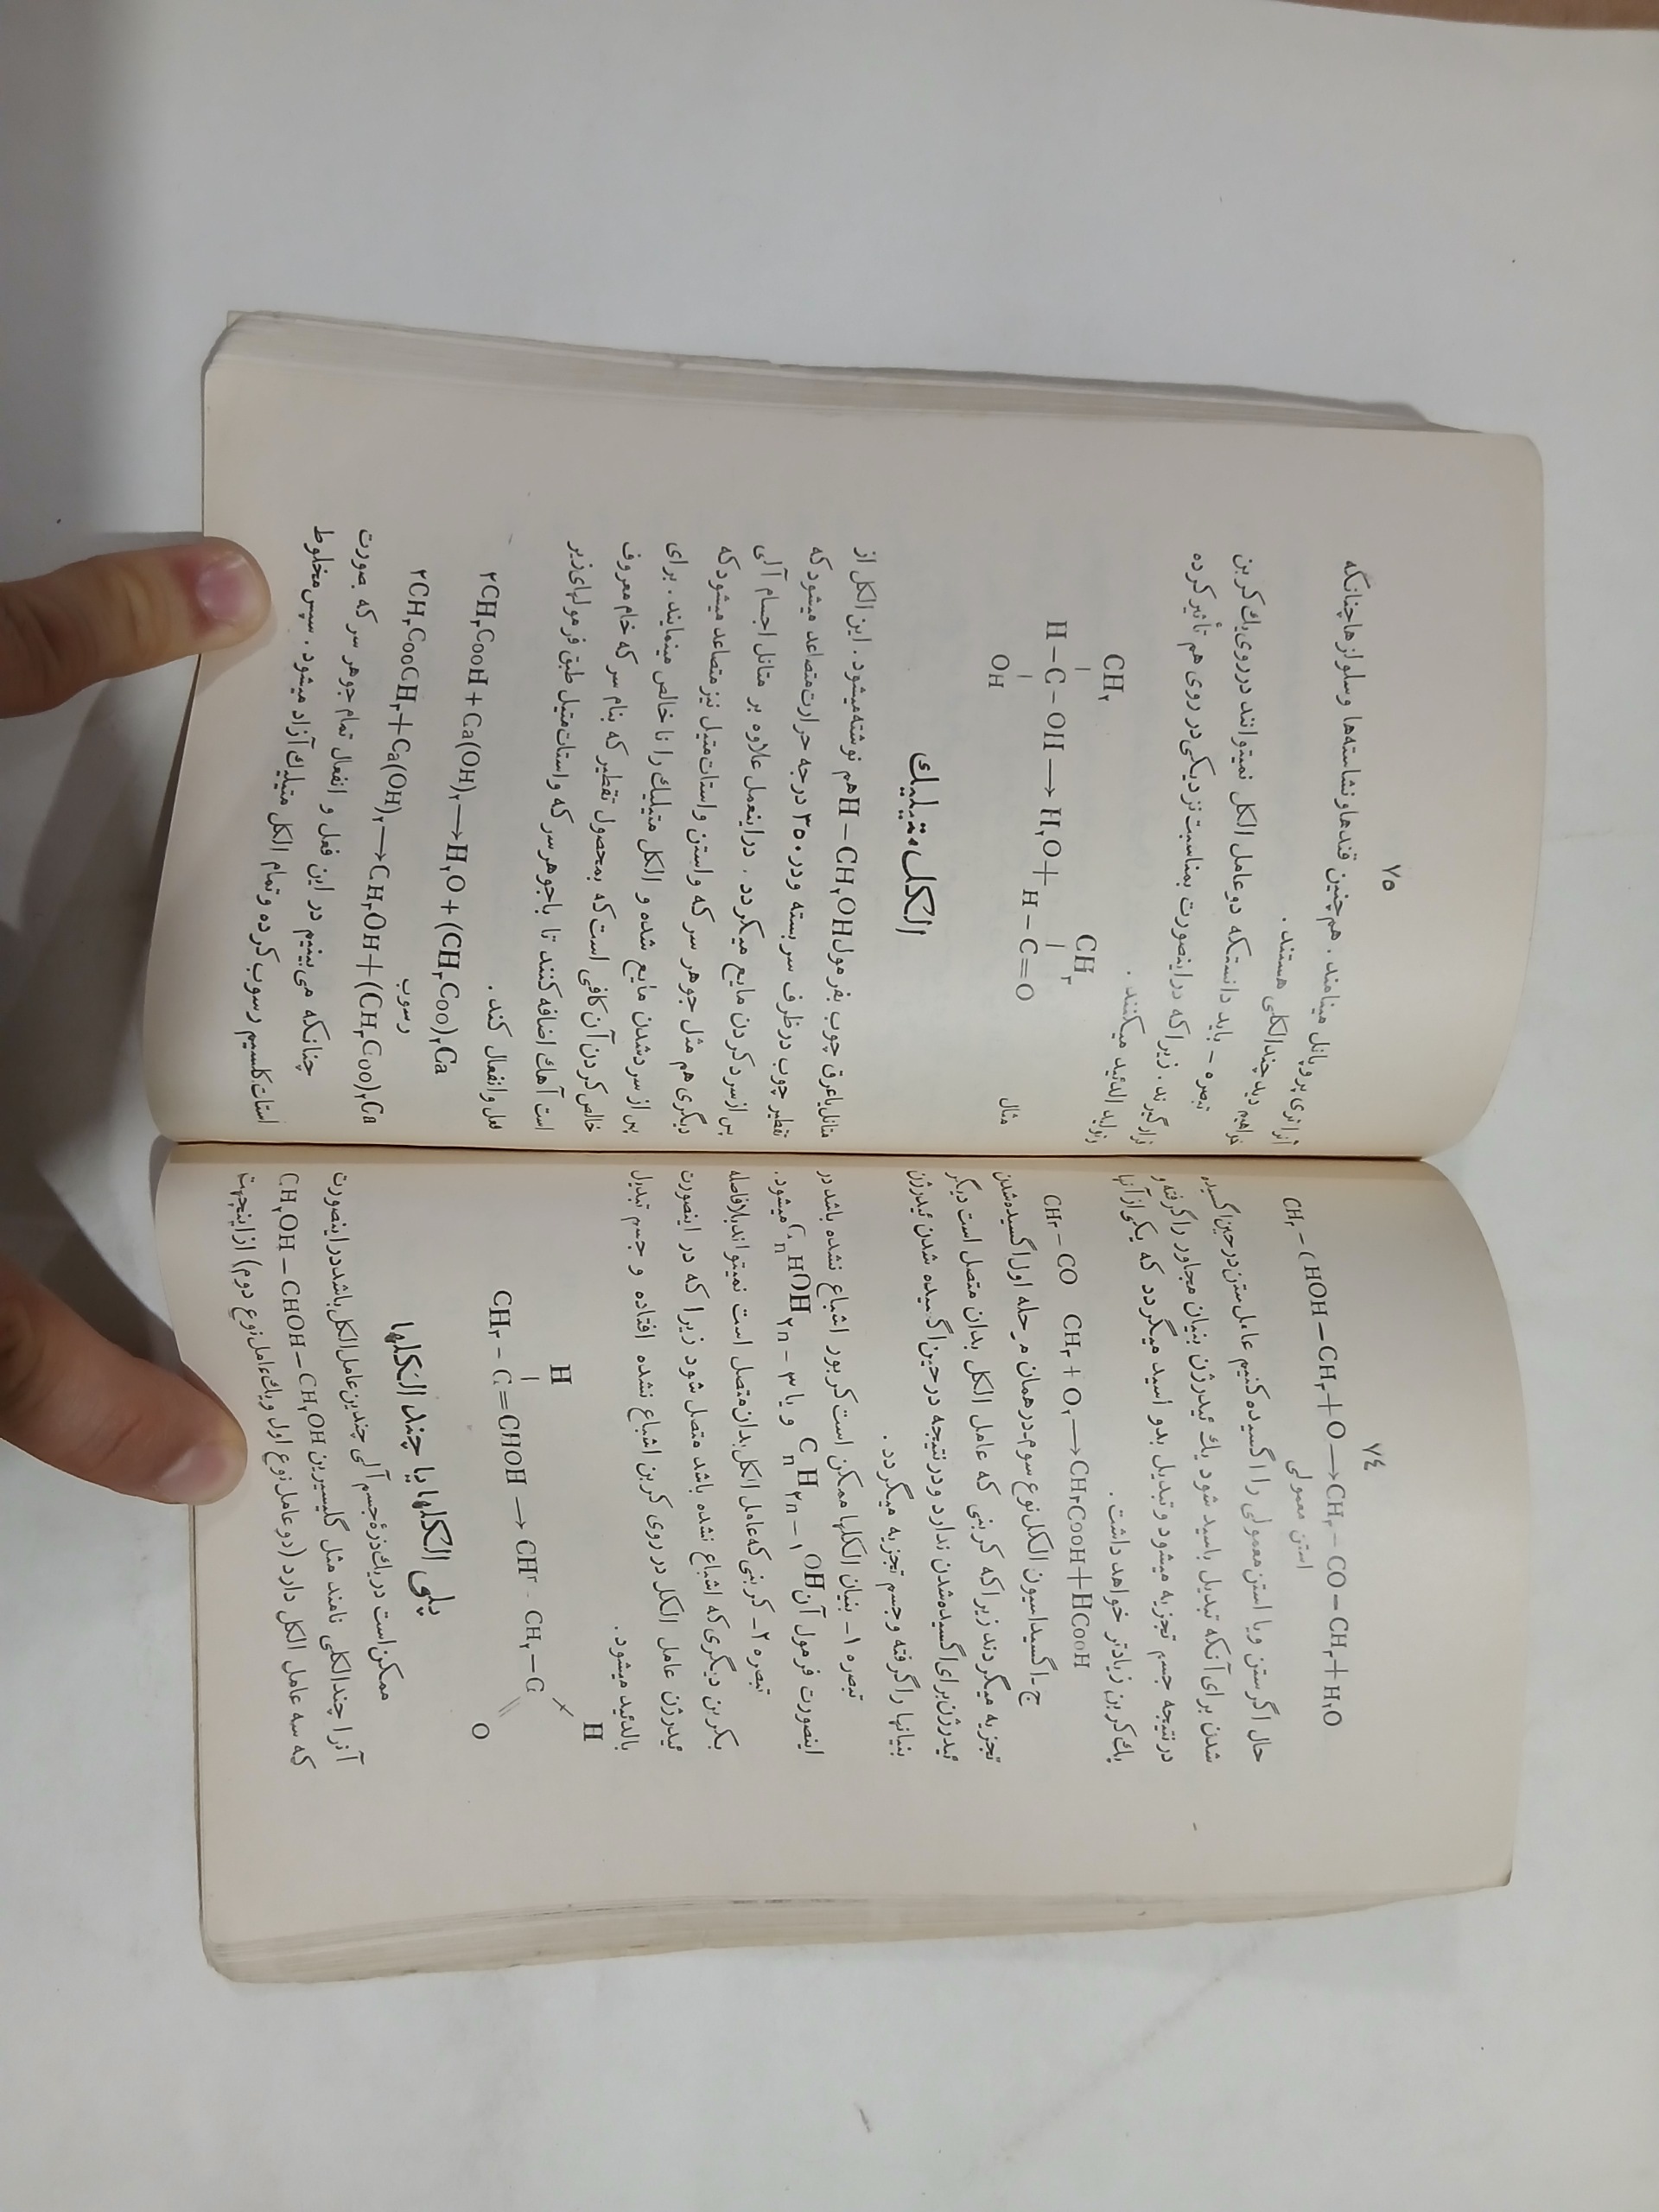 ۷٤
CH۳ – CHOH – CH۳ + O ⟶ CH۳ – CO – CH۳ + H۲O
استن معمولی
حال اگر ستن ویا استن معمولی را اکسیده کنیم عامل ستن در حین اکسیده
شدن برای آنکه تبدیل باسید شود یك ئیدرژن بنیان مجاور را گرفته و
در نتیجه جسم تجزیه میشود و تبدیل بدو اسید میگردد که یکی از آنها
یك کربن زیادتر خواهد داشت .
CH۳ – CO CH۳ + O۳ ⟶ CH۳CooH + HCooH
ج- اکسیداسیون الکل نوع سوم- در همان مرحله اول اکسیده شدن
تجزیه میگردند زیرا که کربنی که عامل الکل بدان متصل است دیگر
ئیدرژن برای اکسیده شدن ندارد و در نتیجه در حین اکسیده شدن ئیدرژن
بنیانها را گرفته و جسم تجزیه میگردد .
تبصره ۱- بنیان الکلها ممکن است کربور اشباع نشده باشد در
اینصورت فرمول آن CnH۲n – ۱OH و یا CnH۲n – ۳OH میشود.
تبصره ۲- کربنی که عامل الکل بدان متصل است نمیتواند بلافاصله
بکربن دیگری که اشباع نشده باشد متصل شود زیرا که در اینصورت
ئیدرژن عامل الکل در روی کربن اشباع نشده افتاده و جسم تبدیل
بالدئید میشود.
H H
CH۳ – C = CHOH ⟶ CH۳ - CH۲ – C
O
پلی الکلها یا چند الکلها
ممکن است در یك ذرهٔ جسم آلی چندین عامل الکل باشد در اینصورت
آنرا چند الکلی نامند مثل گلیسیرین CH۲OH – CHOH – CH۲OH
که سه عامل الکل دارد (دو عامل نوع اول و یك عامل نوع دوم) از اینجهت
۷٥
آنرا تری پروپانل مینامند . هم چنین قندها و نشاسته‌ها و سلولز ها چنانکه
خواهیم دید چند الکلی هستند .
تبصره – باید دانستکه دو عامل الکل نمیتوانند در روی یك کربن
قرار گیرند . زیرا که در اینصورت بمناسبت نزدیکی در روی هم تأثیر کرده
و تولید الدئید میکنند .
CH۳ CH۳
مثال H – C – OH ⟶ H۲O + H – C = O
OH
الکل متیلیك
متانل یا عرق چوب بفرمول H – CH۲OH هم نوشته میشود . این الکل از
تقطیر چوب در ظرف سر بسته و در ۳٥۰ درجه حرارت متصاعد میشود که
پس از سرد کردن مایع میگردد . در اینعمل علاوه بر متانل اجسام آلی
دیگری هم مثل جوهر سرکه و استن و استات متیل نیز متصاعد میشود که
پس از سرد شدن مایع شده و الکل متیلیك را نا خالص مینمایند . برای
خالص کردن آن کافی است که بمحصول تقطیر که بنام سرکه خام معروف
است آهك اضافه کنند تا با جوهر سرکه و استات متیل طبق فرمولهای زیر
فعل و انفعال کند .
۲CH۳CooH + Ca(OH)۲ ⟶ H۲O + (CH۳Coo)۲Ca
رسوب
۲CH۳CooCH۳ + Ca(OH)۲ ⟶ CH۳OH + (CH۳Coo)۲Ca
چنانکه می بینیم در این فعل و انفعال تمام جوهر سرکه بصورت
استات کلسیم رسوب کرده و تمام الکل متیلیك آزاد میشود . سپس مخلوط